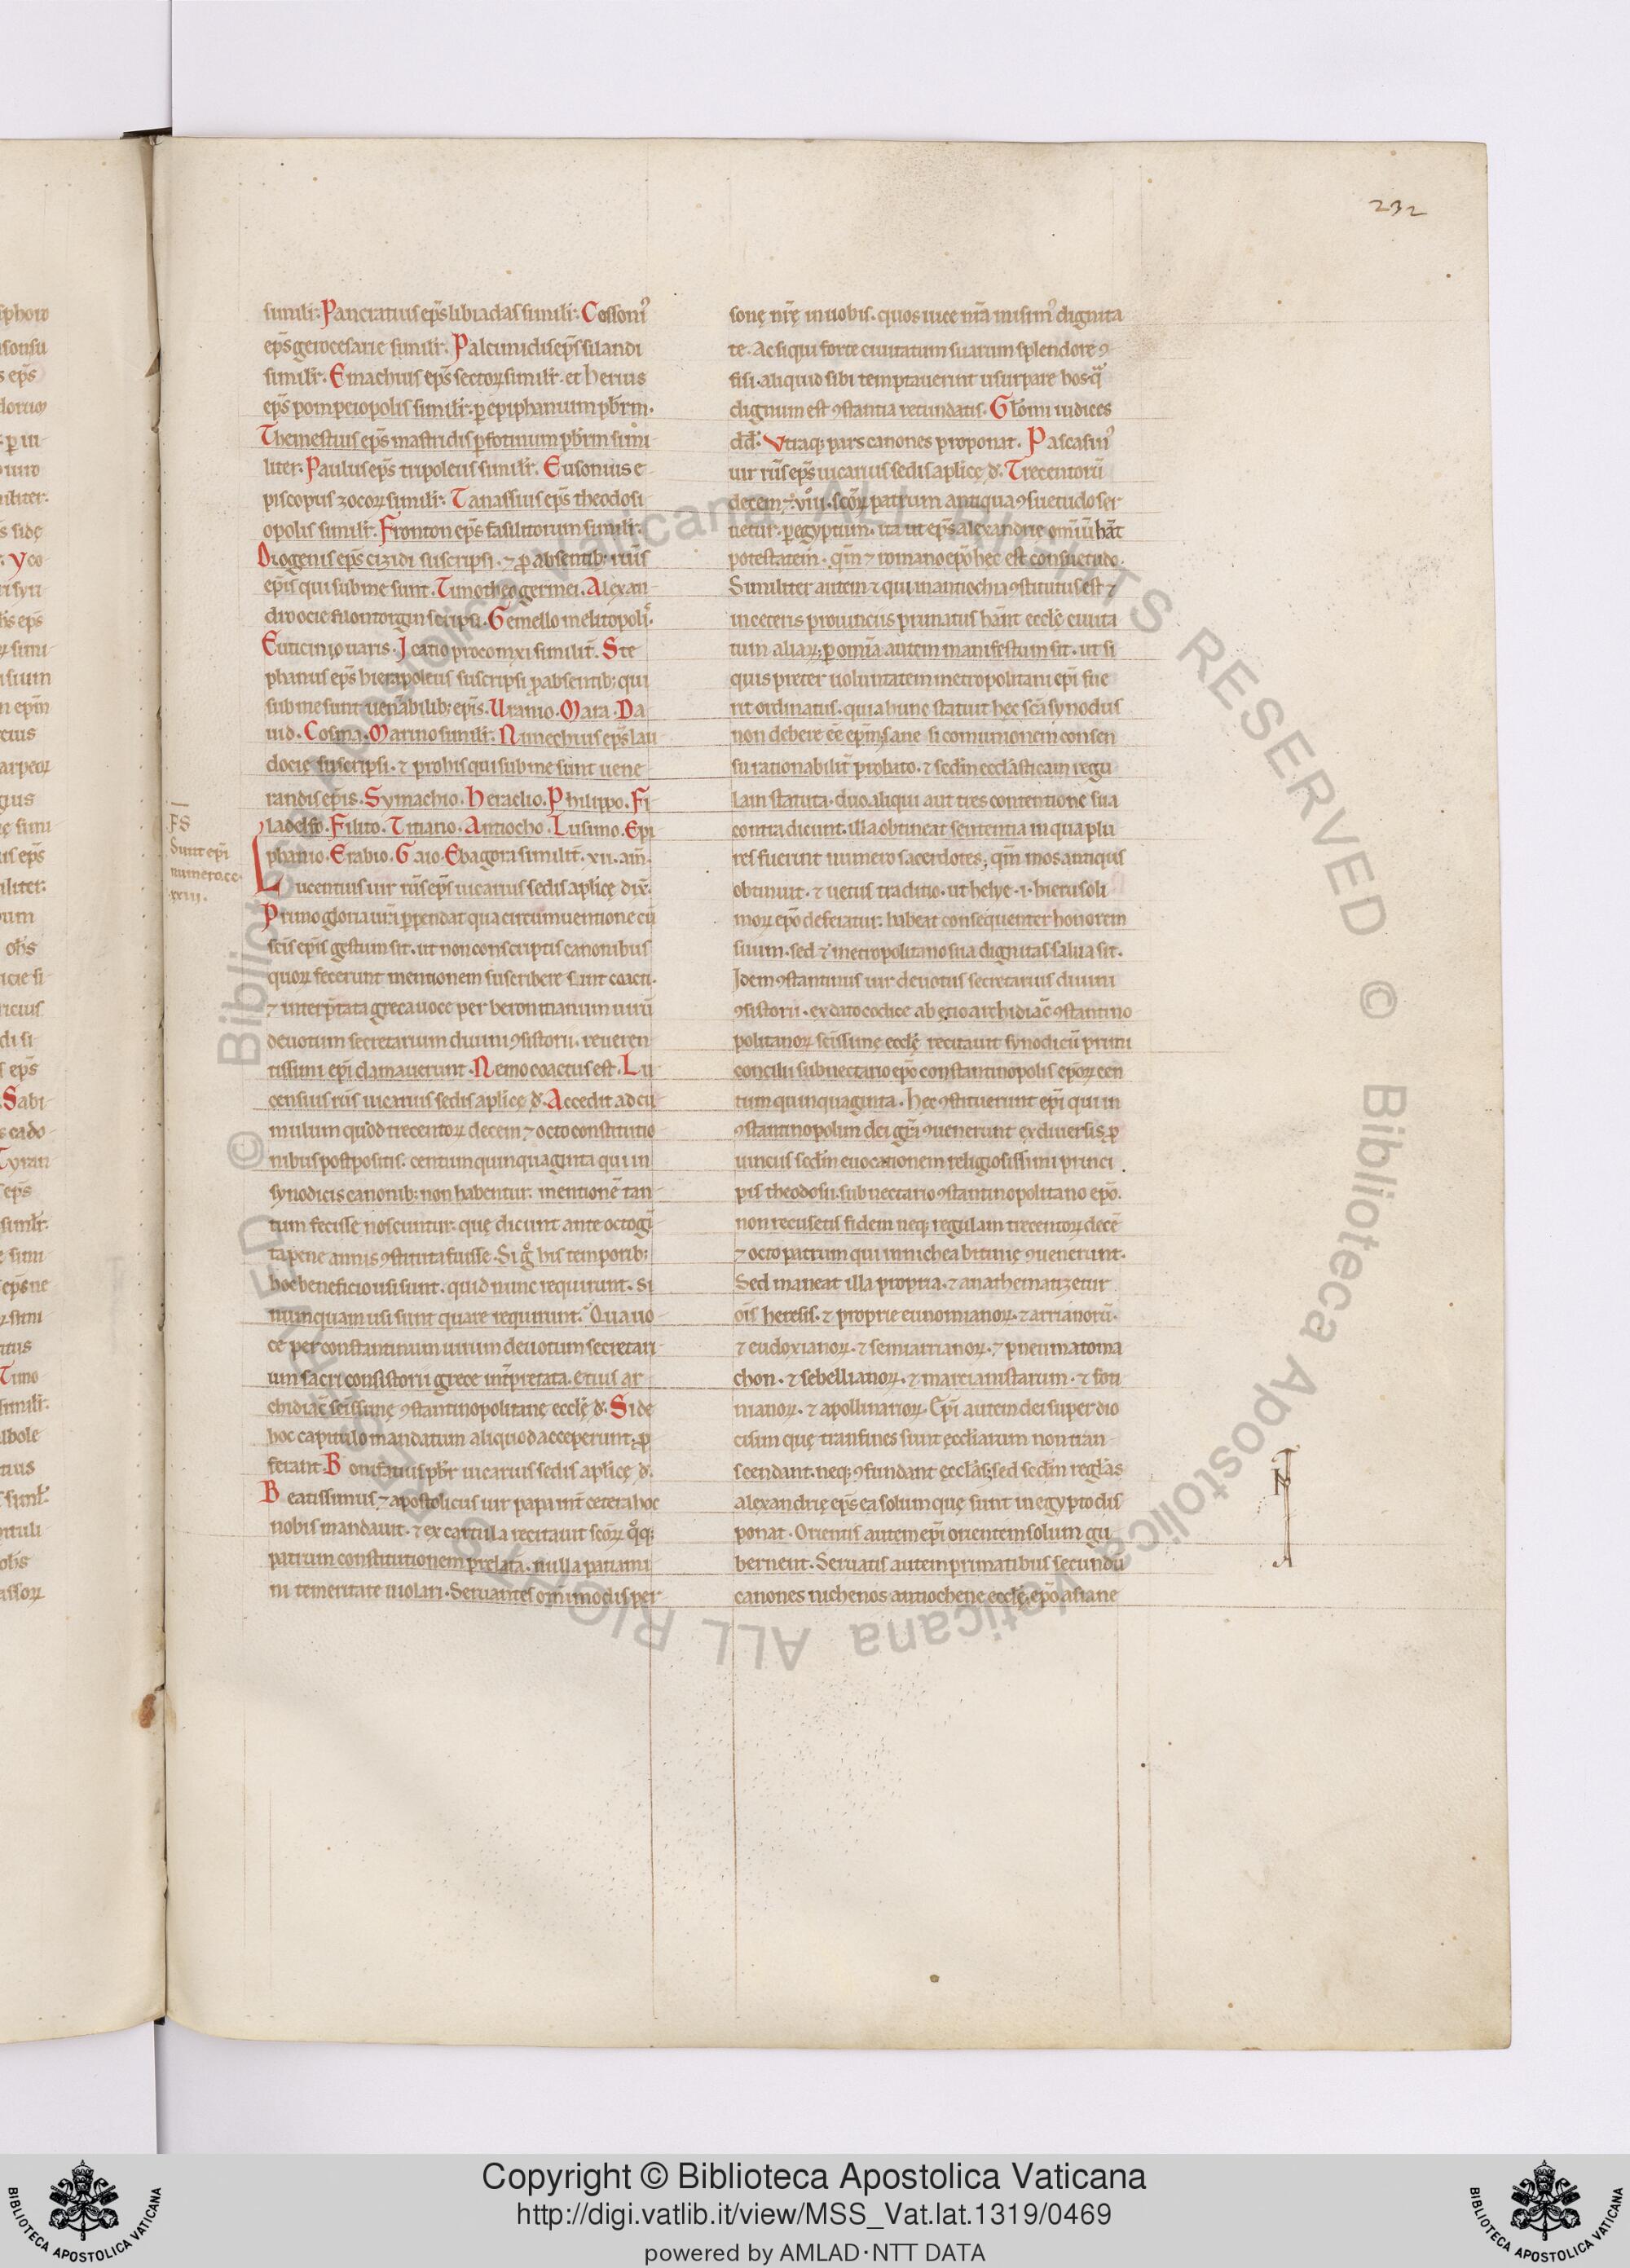 232
simili͛. Panciatius ep̄s libiadas simili͛. Cossoniꝰ
ep̄s gerocesarie simili͛. Palcinidis ep̄s silandi
simili͛. Emachius ep̄s sectoꝝ simili͛. et herius
ep̄s pompeiopolis simili͛. ꝑ epiphanium pb̄rm.
Themestius ep̄s mastridis ꝑ fotinum pb̄rm simi
liter. Paulus ep̄s tripoleus simili͛. Eusonius e
piscopus zocoꝝ simili͛. Tanassius ep̄s theodosi
opolis simili͛. Fronton ep̄s fasilitorum simili͛.
Diogenis ep̄s cizidi suscripsi. ⁊ ꝓ absentib; rūis
ep̄is qui sub me sunt. Timotheo germei. Alexan
dro ocie Gemello melitopoli.
Euticinio uaris. Icatio simili͛. Ste
phanus ep̄s hierapoleus suscripsi ꝓ absentib; qui
sub me sunt uen̄abilib; ep̄is. Uranio. Mara. Da
uid. Cosma. Marino simili͛. Nunechius ep̄s lau
docie suscripsi. ⁊ pro his qui sub me sunt uene
randis ep̄is. Symachio. Heraclio. Philippo. Fi
ladelfo. Filito. Titiano. Antiocho. Lusimo. Epi
phanio. Erabio. Gaio. Ebagora simili͛. xii. am̄.
FS
Sunt ep̄i
numero cc.
xxiii.
Lucentius uir rūs ep̄s uicarius sedis aplicę dix̄.
Primo gloria ur̄i ꝑpendat qua circumuentione cū
sc̄is ep̄is gestum sit. ut non conscriptis canonibus
quoꝝ fecerunt mentionem suscribere sint coacti.
⁊ interp̄tata greca uoce per berontianum uirū
deuotum secretarium diuini ꝯsistorii. reueren
tissimi ep̄i clamauerunt. Nemo coactus est. Lu
censius rūs uicarius sedis aplicę ꝺ̵. Accedit ad cu
mulum quod trecentoꝝ decem ⁊ octo constitutio
nibus postpositis. centum quinquaginta qui in
synodicis canonib; non habentur. mentionē tan
tum fecisse noscuntur. quę dicunt ante octogī
ta pene annis ꝯstituta fuisse. Si gͦ his temporib;
hoc beneficio usi sunt. quid nunc requirunt. Si
numquam usi sunt quare requirunt. Qua uo
ce per constantinum uirum deuotum secretari
um sacri consistorii grece int̄pretata. Etius ar
chidiac̄ sc̄issimę ꝯstantinopolitanę eccl̄ę ꝺ̵. Si de
hoc capitulo mandatum aliquod acceperunt. ꝓ
ferant. Bonifatius pb̄r uicarius sedis aplicę ꝺ̵.
Beatissimus ⁊ apostolicus uir papa int̄ cetera hoc
nobis mandauit. ⁊ ex cartula recitauit sc̄oꝝ qͦq;
patrum constitutionem prelata. nulla patiami
ni temeritate uiolari. Seruantes om̄imodis per
sonę nr̄ę in uobis. quos uice nr̄a misimꝰ dignita
te. Ac si qui forte ciuitatum suarum splendore ꝯ
fisi. aliquid sibi temptauerint usurpare hos qͣ
dignum est ꝯstantia retundatis. Gl̄omi iudices
dd̄. Utraq; pars canones proponat. Pascasinꝰ
uir rūs ep̄s uicarius sedis aplicę ꝺ̵. Trecentorū
decem ⁊ viii. sc̄oꝝ patrum antiqua ꝯsuetudo ser
uetur. ꝑ egyptum. ita ut ep̄s alexandrie om̄iū hāt
potestatem. qm̄ ⁊ romano ep̄o hec est consuetudo.
Similiter autem ⁊ qui in antiochia ꝯstitutus est ⁊
in ceteris prouinciis primatus hānt eccl̄e ciuita
tum aliaꝝ. ꝑ om̄ia autem manifestum sit. ut si
quis preter uoluntatem metropolitani ep̄i fue
rit ordinatus. quia hunc statuit hęc sc̄a synodus
non debere ēē ep̄m. sane si comunionem consen
su rationabilit̄ probato. ⁊ sedm̄ eccl̄asticam regu
lam statuta. duo aliqui aut tres contentione sua
contradicunt. illa obtineat sententia in qua plu
res fuerint numero sacerdotes. qm̄ mos antiqus
obtinuit. ⁊ uetus traditio. ut helye .i. hierusoli
moꝝ ep̄o deferatur. habeat consequenter honorem
suum. sed ⁊ metropolitano sua dignitas salua sit.
Idem ꝯstantinus uir deuotus secretarius diuini
ꝯsistorii. ex dato codice ab ętio archidiac̄ ꝯstantino
politanoꝝ sc̄issimę eccl̄ę recitauit synodicū primi
concilii sub nectario ep̄o constantinopolis ep̄oꝝ cen
tum quinquaginta. Hec ꝯstituerunt ep̄i qui in
ꝯstantinopolim dei gr̄a ꝯuenerunt ex diuersis ꝓ
uinciis sedm̄ euocationem religiosissimi princi
pis theodosii. sub nectario ꝯstantinopolitano ep̄o.
non recusetis fidem neq; regulam trecentoꝝ decē
⁊ octo patrum qui in nichea bitinię ꝯuenerunt.
Sed maneat illa propria. ⁊ anathematizetur
ois̄ heresis. ⁊ proprie eunomianoꝝ. ⁊ arrianorū.
⁊ eudoxianoꝝ. ⁊ semiarrianoꝝ. ⁊ pneumatoma
chon. ⁊ sebellianoꝝ. ⁊ marcianistarum. ⁊ foti
nianoꝝ. ⁊ apollinarioꝝ. Ep̄i autem dei super dio
cesim quę tranfines sunt eccl̄iarum non tran
scendant. neq; ꝯfundant ęccl̄as. sed sedm̄ regl̄as
alexandrię ep̄s ea solum quę sunt in egypto dis
ponat. Orientis autem ep̄i orientem solum gu
bernent. Seruatis autem primatibus secundū
canones nichenos antiochene eccl̄ę. ep̄o asiane
Copyright © Biblioteca Apostolica Vaticana
http://digi.vatlib.it/view/MSS_Vat.lat.1319/0469
powered by AMLAD·NTT DATA
BIBLIOTECA APOSTOLICA VATICANA
BIBLIOTECA APOSTOLICA VATICANA
© Biblioteca Apostolica Vaticana ALL RIGHTS RESERVED
© Biblioteca Apostolica Vaticana ALL RIGHTS RESERVED